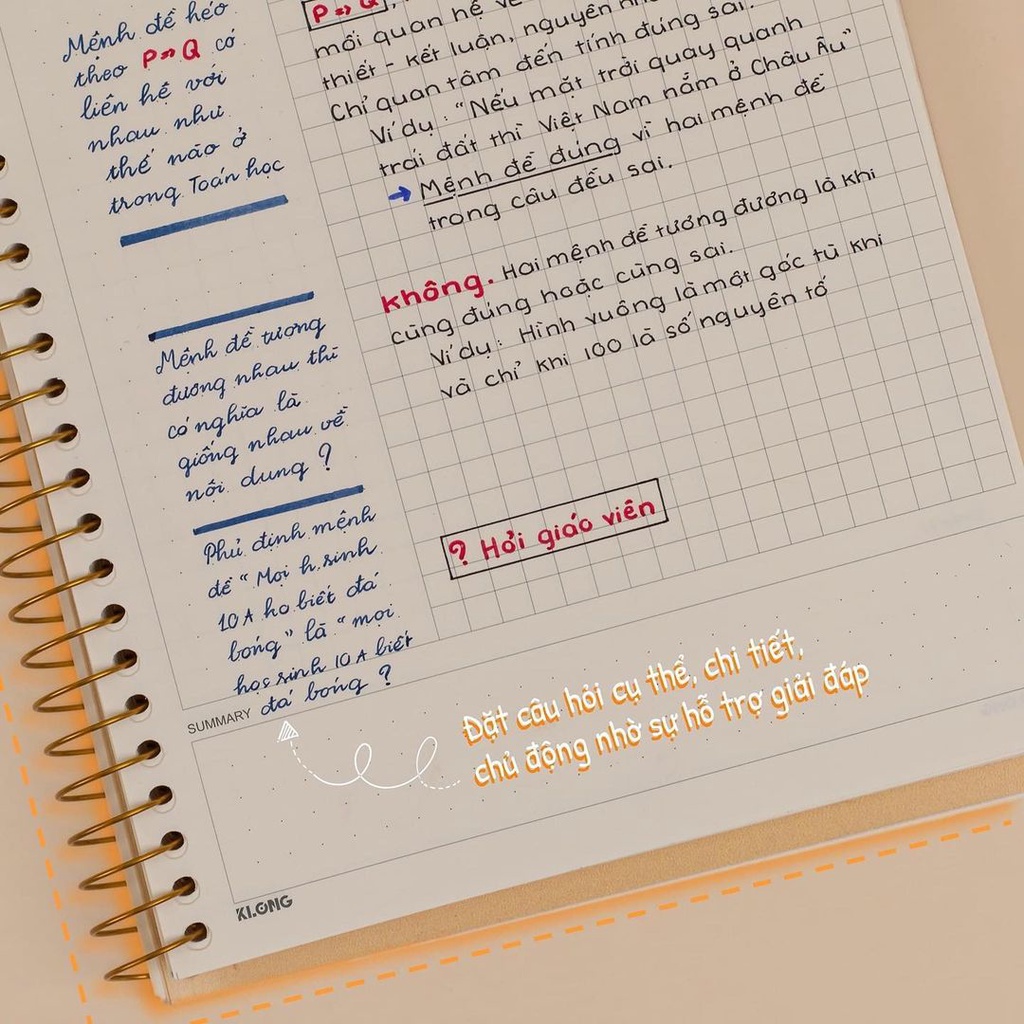 Mệnh đề kéo
theo P=>Q có
liên hệ với
nhau như
thế nào ở
trong Toán học
P=>Q,
mối quan hệ về
thiết - kết luận, nguyên
Chỉ quan tâm đến tính đúng sai.
Ví dụ: "Nếu mặt trời quay quanh
trái đất thì Việt Nam nằm ở Châu Âu"
→ Mệnh đề đúng vì hai mệnh đề
trong câu đều sai.
Mệnh đề tương
đương nhau thì
có nghĩa là
giống nhau về
nội dung ?
không. Hai mệnh đề tương đương là khi
cùng đúng hoặc cùng sai.
Ví dụ: Hình vuông là một góc tù khi
và chỉ khi 100 là số nguyên tố
Phủ định mệnh
đề "Mọi h.sinh
10A ko biết đá
bóng" là "mọi
học sinh 10A biết
đá bóng ?
? Hỏi giáo viên
SUMMARY
Đặt câu hỏi cụ thể, chi tiết,
chủ động nhờ sự hỗ trợ giải đáp
KLONG